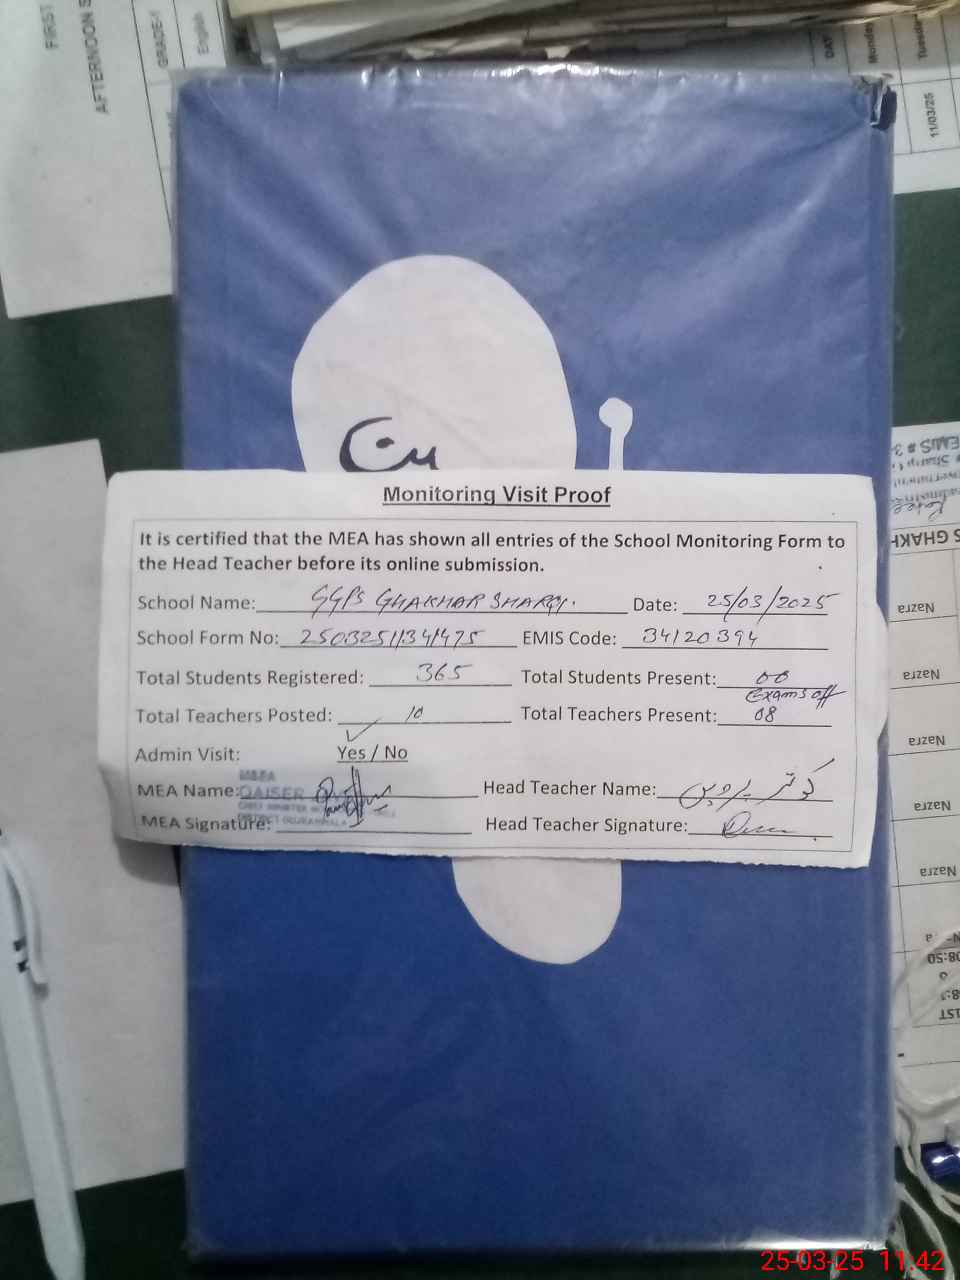 FIRST
AFTERNOON S
GRADE-I
English
DAT
Monday
Tuesda
11/03/25
Monitoring Visit Proof
It is certified that the MEA has shown all entries of the School Monitoring Form to
the Head Teacher before its online submission.
School Name: GGPS GHAKHAR SHARQI. Date: 25/03/2025
School Form No: 25032511341475 EMIS Code: 34120394
Total Students Registered: 365 Total Students Present: 00
Exams off
Total Teachers Posted: 10 Total Teachers Present: 08
Admin Visit: Yes / No
MEA Name: QAISER Head Teacher Name: کوثر پروین
MEA Signature: Head Teacher Signature:
EMIS # 3
S GHAKH
Nazra
Nazra
Nazra
Nazra
Nazra
08:50
1ST
25-03-25 11:42